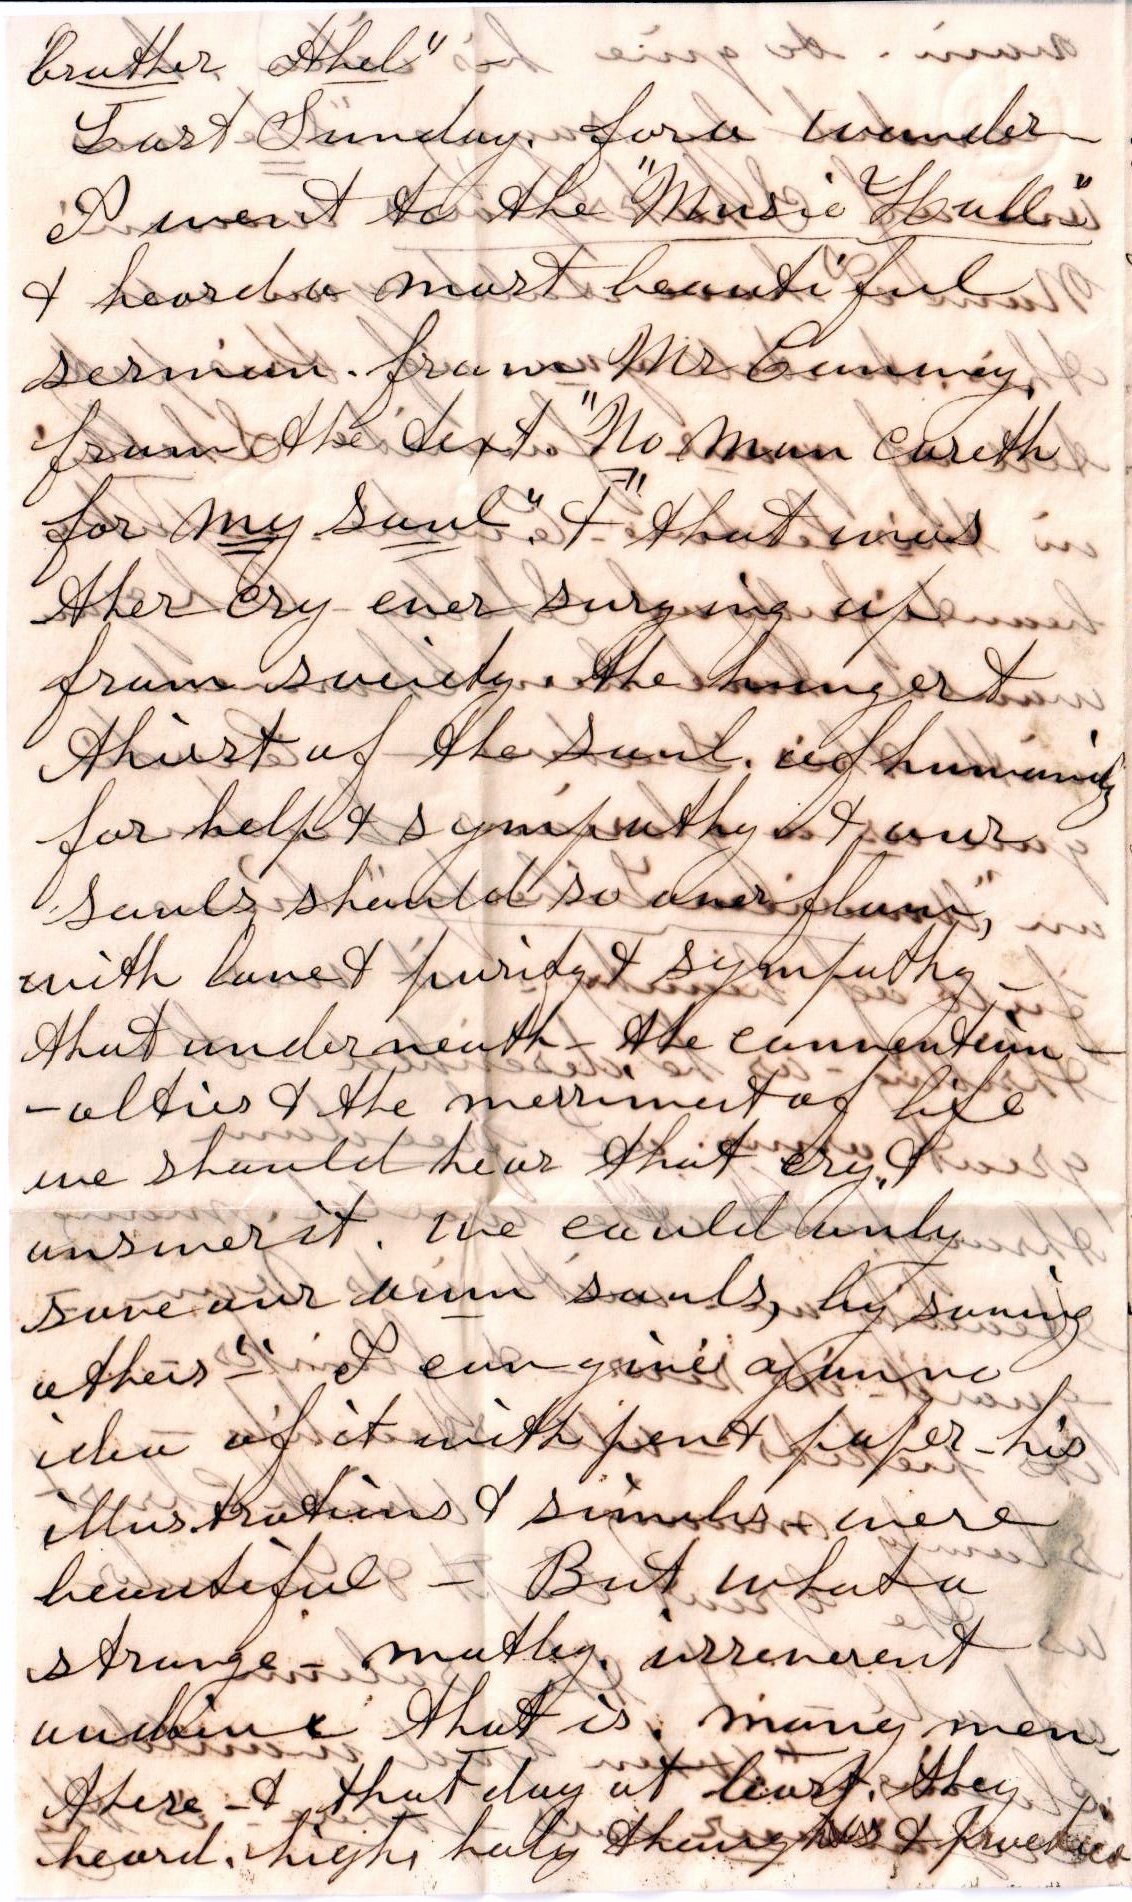 brother Abel" -
Last Sunday. for a wonder
I went to the "Music Hall"
& heard a most beautiful
sermon. from Mr Conway.
from the text. "No man careth
for my soul". & "that was
ther cry ever surging up
from society. the hunger &
thirst of the soul. of humanity
for help & sympathy & our
souls should so overflow,"
with love & purity & sympathy -
that underneath - the convention -
- alties & the merriment of life
we should hear that cry. &
answer it. we could only
save our own souls, by saving
others" - I can give you no
idea of it with pen & paper - his
illustrations & similes - were
beautiful - But what a
strange - motley. irreverent
audience that is. many men
there - & that day at least. they
heard. high, holy thoughts &